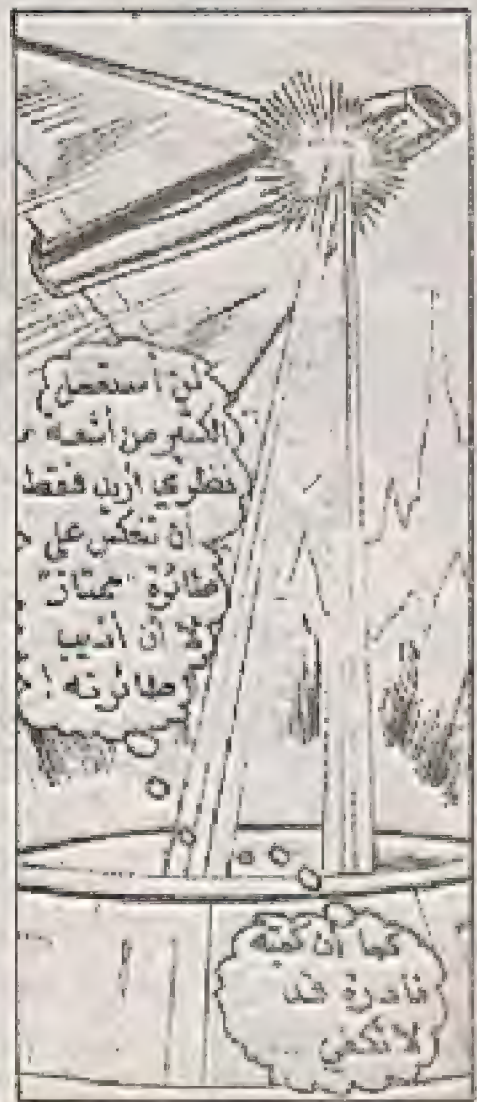 لن أستعمل
الكثير من أشعة
نظري أريد فقط
أن تنعكس على
طائرة "ممتاز"
لا أن أذيب
طائرته !
كما أن كمية
نادرة قد
لا تكفي